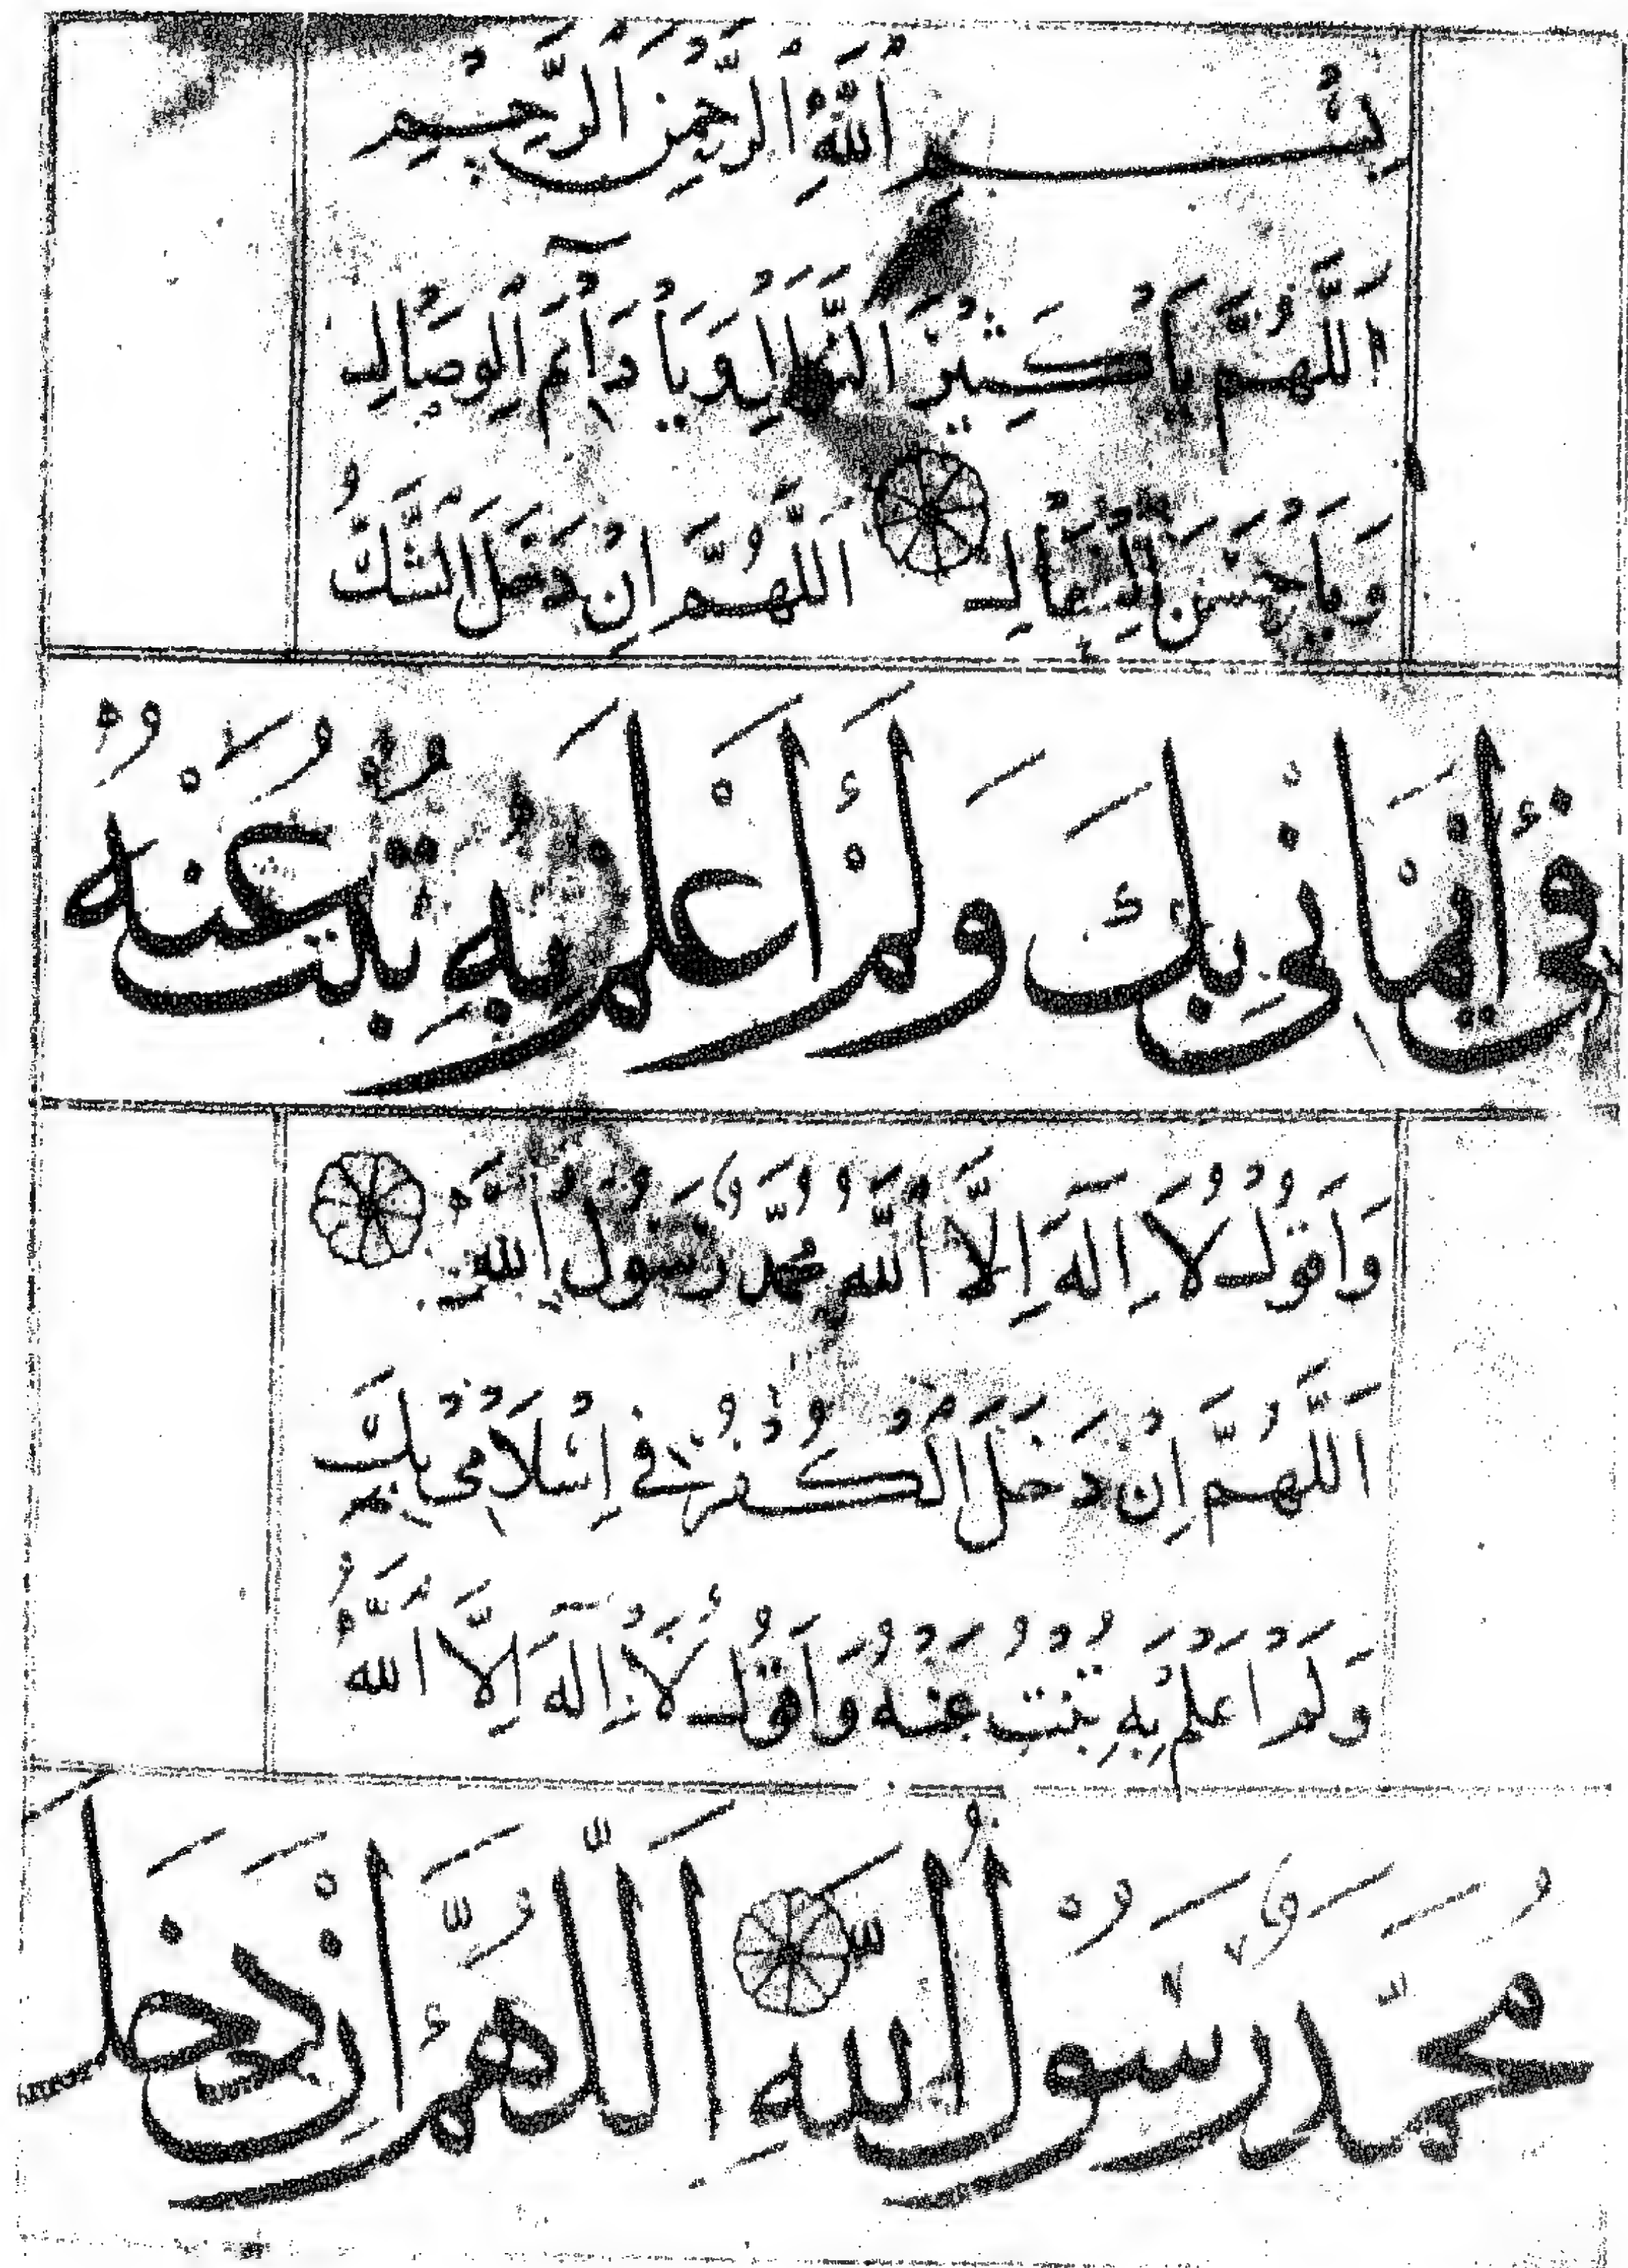 بِسْمِ اللَّهِ الرَّحْمَنِ الرَّحِيمِ
اَللَّهُمَّ يَا كَثِيرَ النَّوَالِ وَيَا دَآئِمَ الْوِصَالِ
وَيَا حُسْنَ الْفِعَالِ اَللَّهُمَّ اِنْ دَخَلَ الشَّكُّ
فِي اِيمَانِي بِكَ وَلَمْ اَعْلَمْ بِهِ تُبْتُ عَنْهُ
وَاَقُولُ لَا اِلَهَ اِلَّا اللَّهُ مُحَمَّدٌ رَسُولُ اللَّهِ
اَللَّهُمَّ اِنْ دَخَلَ الْكُفْرُ فِي اِسْلَامِي بِكَ
وَلَمْ اَعْلَمْ بِهِ تُبْتُ عَنْهُ وَاَقُولُ لَا اِلَهَ اِلَّا اللَّهُ
مُحَمَّدٌ رَسُولُ اللَّهِ اَللَّهُمَّ اِنْ دَخَلَ